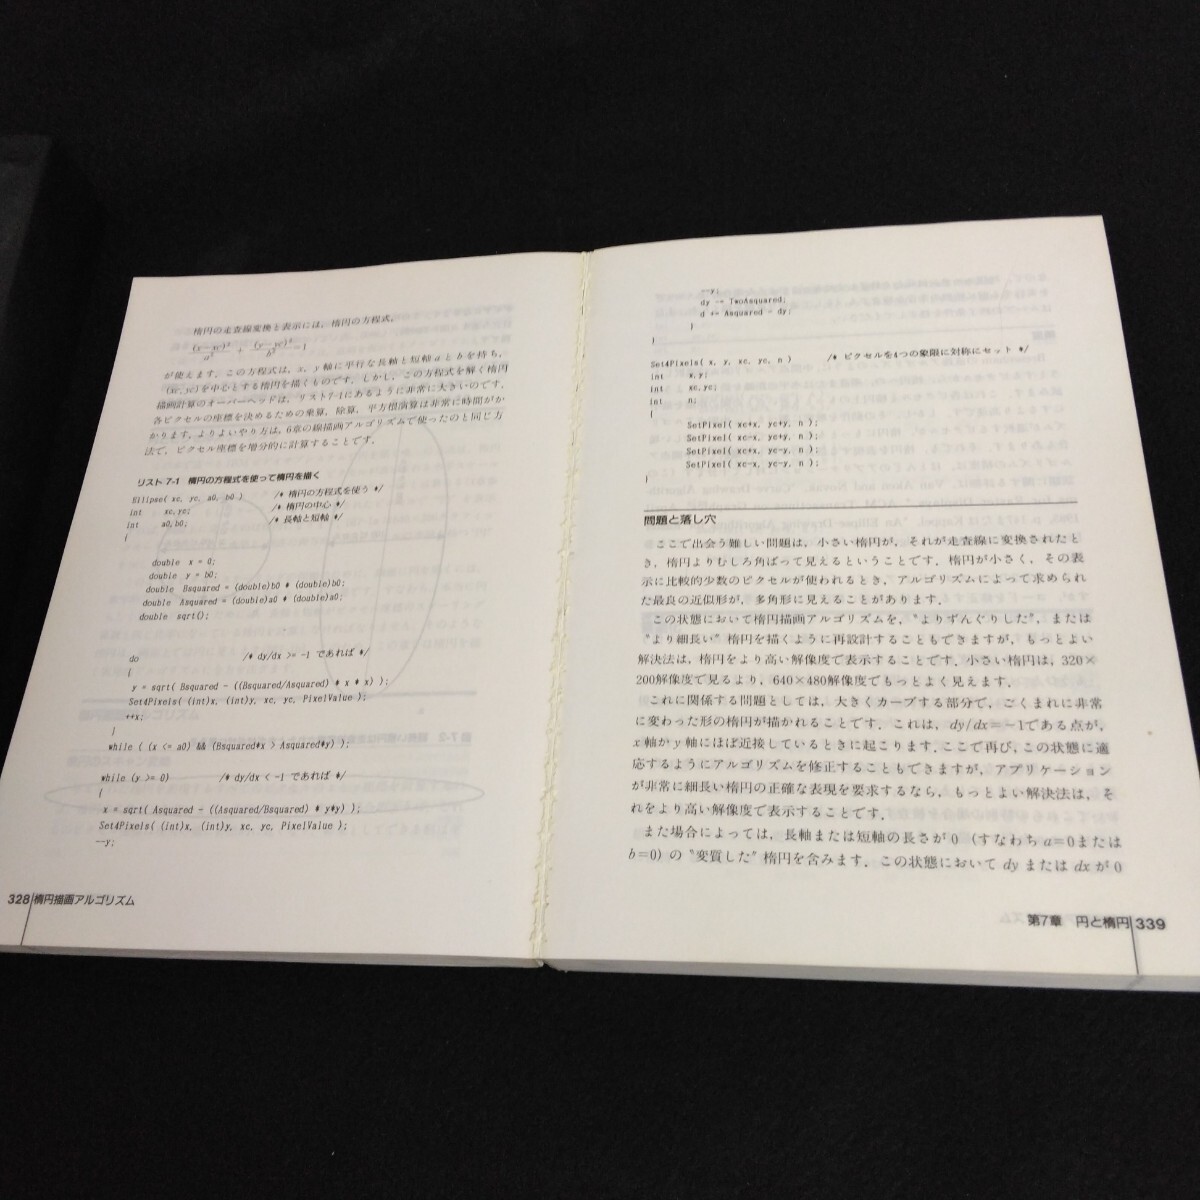 楕円の走査線変換と表示には，楕円の方程式，
(x−xc)²/a² + (y−yc)²/b² =1
が使えます．この方程式は，x，y軸に平行な長軸と短軸aとbを持ち，
(xc,yc)を中心とする楕円を描くものです．しかし，この方程式を解く楕円
描画計算のオーバーヘッドは，リスト7-1にあるように非常に大きいのです．
各ピクセルの座標を決めるための乗算，除算，平方根演算は非常に時間がか
かります．よりよいやり方は，6章の線描画アルゴリズムで使ったのと同じ方
法で，ピクセル座標を増分的に計算することです．
リスト 7-1 楕円の方程式を使って楕円を描く
Ellipse( xc, yc, a0, b0 ) /* 楕円の方程式を使う */
int xc,yc; /* 楕円の中心 */
int a0,b0; /* 長軸と短軸 */
{
double x = 0;
double y = b0;
double Bsquared = (double)b0 * (double)b0;
double Asquared = (double)a0 * (double)a0;
double sqrt();
do /* dy/dx >= -1 であれば */
{
y = sqrt( Bsquared - ((Bsquared/Asquared) * x * x) );
Set4Pixels( (int)x, (int)y, xc, yc, PixelValue );
++x;
}
while ( (x <= a0) && (Bsquared*x > Asquared*y) );
while (y >= 0) /* dy/dx < -1 であれば */
{
x = sqrt( Asquared - ((Asquared/Bsquared) * y*y) );
Set4Pixels( (int)x, (int)y, xc, yc, PixelValue );
--y;
328 楕円描画アルゴリズム
--y;
dy -= TwoAsquared;
d += Asquared - dy;
}
}
Set4Pixels( x, y, xc, yc, n ) /* ピクセルを4つの象限に対称にセット */
int x,y;
int xc,yc;
int n;
{
SetPixel( xc+x, yc+y, n );
SetPixel( xc-x, yc+y, n );
SetPixel( xc+x, yc-y, n );
SetPixel( xc-x, yc-y, n );
}
問題と落し穴
ここで出会う難しい問題は，小さい楕円が，それが走査線に変換されたと
き，楕円よりむしろ角ばって見えるということです．楕円が小さく，その表
示に比較的少数のピクセルが使われるとき，アルゴリズムによって求められ
た最良の近似形が，多角形に見えることがあります．
この状態において楕円描画アルゴリズムを，〝よりずんぐりした〟，または
〝より細長い〟楕円を描くように再設計することもできますが，もっとよい
解決法は，楕円をより高い解像度で表示することです．小さい楕円は，320×
200解像度で見るより，640×480解像度でもっとよく見えます．
これに関係する問題としては，大きくカーブする部分で，ごくまれに非常
に変わった形の楕円が描かれることです．これは，dy/dx=−1である点が，
x軸かy軸にほぼ近接しているときに起こります．ここで再び，この状態に適
応するようにアルゴリズムを修正することもできますが，アプリケーション
が非常に細長い楕円の正確な表現を要求するなら，もっとよい解決法は，そ
れをより高い解像度で表示することです．
また場合によっては，長軸または短軸の長さが0（すなわちa=0または
b=0）の〝変質した〟楕円を含みます．この状態においてdyまたはdxが0
第7章 円と楕円 339